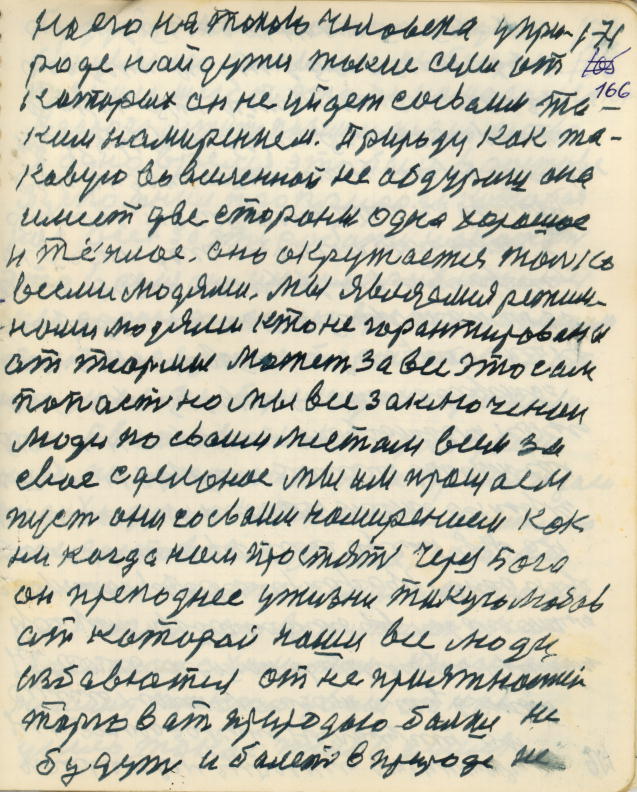 на его на такого человека у при- 171
роде найдути такие силы от 105
которых он не уйдет со своим та- 166
ким намирением. Природу как та-
кавую во вселенной не абдуриш она
имеет две стораны одна хорошое
и тёплое. оно окружается только
всеми людями. Мы являемся
нами людями кто не горантированы
от тюрмы может за все это сам
попаст но мы все заключеным
люди по своим местам всем за
свое сделоное мы им прощаем
пуст они со своим намирением как
ни когда нам простят через Бога
он преподнес у жизни такую любов
от которой наши все люди
избавются от не приятностей
торговат природою болше не
будут и болет в природе не